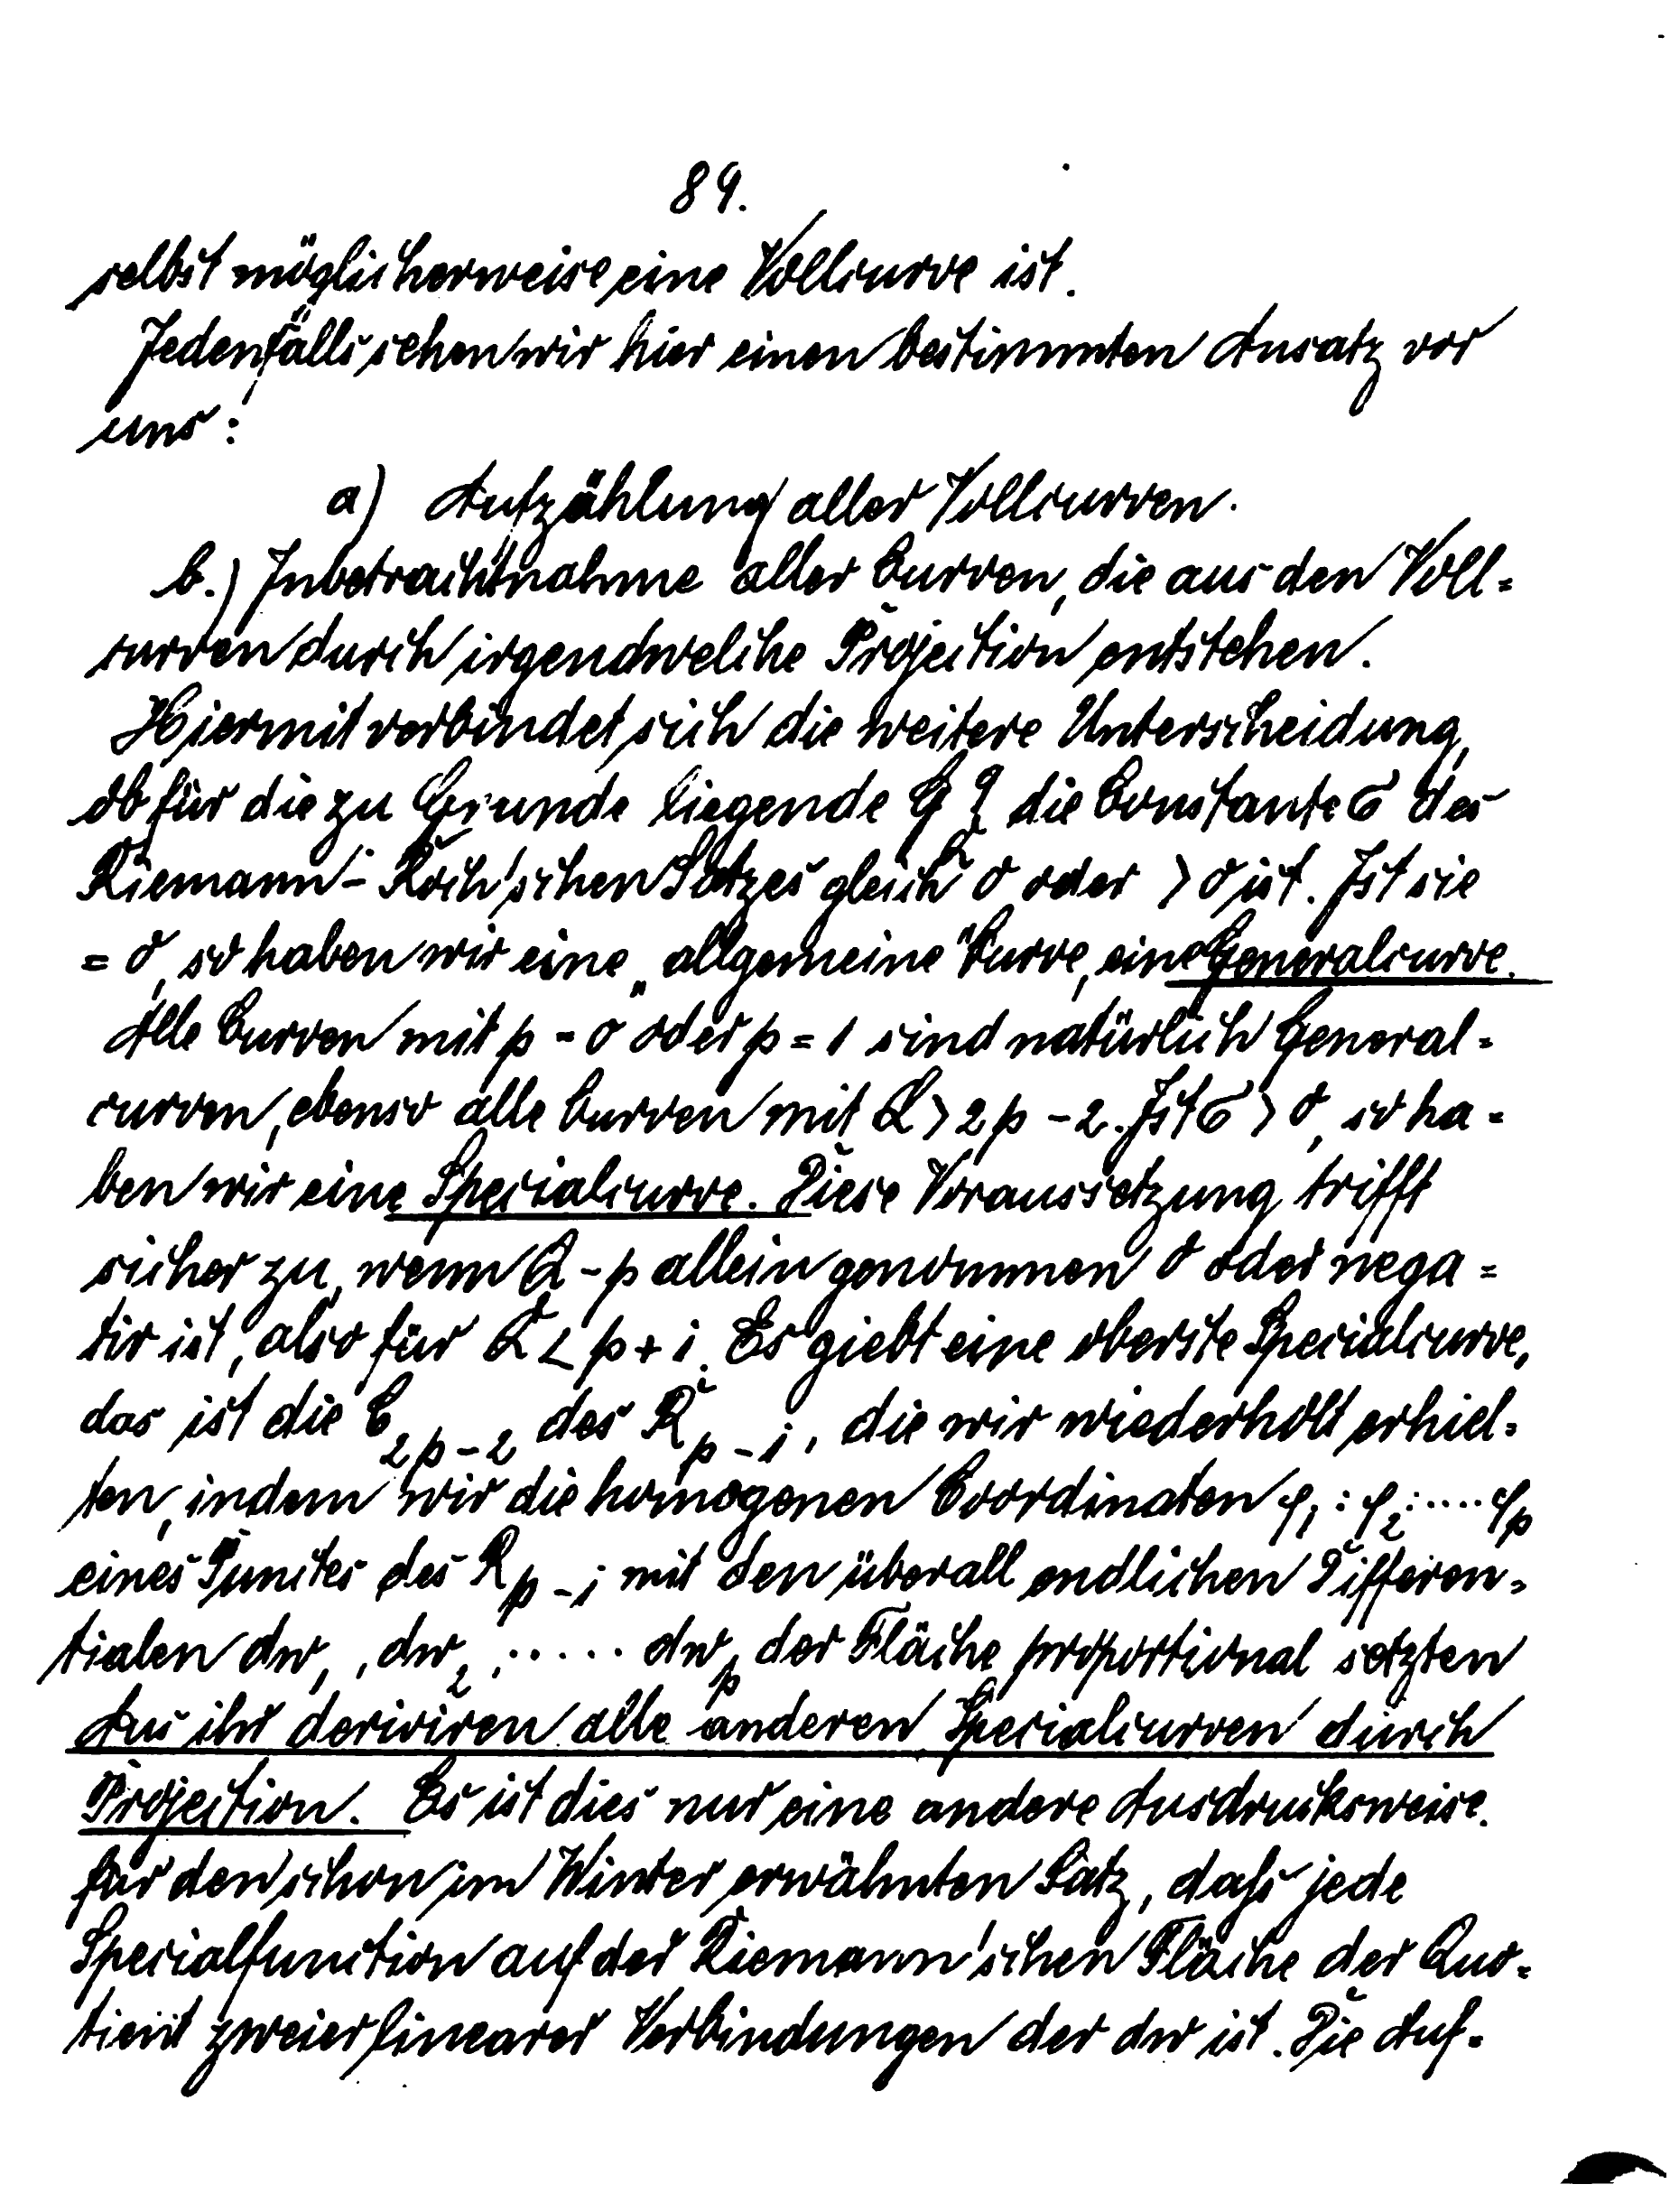 89.
selbst möglicherweise eine Vollcurve ist.
Jedenfalls sehen wir hier einen bestimmten Ansatz vor
uns:
a) Aufzählung aller Vollcurven.
b.) Inbetrachtnahme aller Curven, die aus den Voll=
curven durch irgendwelche Projection entstehen.
Hiermit verbindet sich die weitere Unterscheidung,
ob für die zu Grunde liegende die Constante σ des
Riemann-Roch'schen Satzes gleich 0 oder > 0 ist. Ist sie
= 0, so haben wir eine „allgemeine" Curve, eine Generalcurve.
Alle Curven mit p = 0 oder p = 1 sind natürlich General=
curven, ebenso alle Curven mit Q > 2p - 2. Ist σ > 0, so ha=
ben wir eine Specialcurve. Diese Voraussetzung trifft
sicher zu, wenn Q - p allein genommen 0 oder nega=
tiv ist, also für Q < p + 1. Es giebt eine oberste Specialcurve,
das ist die C_{2p-2} des R_{p-1}, die wir wiederholt erhiel=
ten, indem wir die homogenen Coordinaten φ₁ : φ₂ : .... φ_p
eines Punctes des R_{p-1} mit den überall endlichen Differen=
tialen dw₁, dw₂, ..... dw_p der Fläche proportional setzten
Aus ihr deriviren alle anderen Specialcurven durch
Projection. Es ist dies nur eine andere Ausdrucksweise.
für den schon im Winter erwähnten Satz, dass jede
Specialfunction auf der Riemann'schen Fläche der Quo=
tient zweier linearer Verbindungen der dw ist. Die Auf=